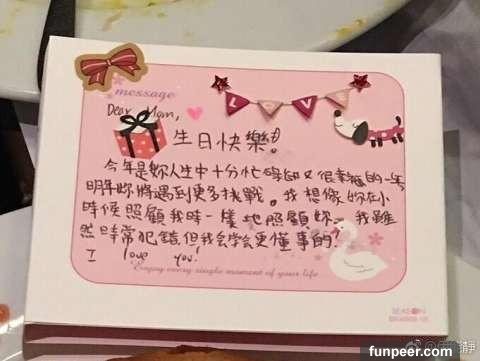 message
Dear Mom,
LOVE
生日快樂。
今年是妳人生中十分忙碌卻又很幸福的一年
明年妳將遇到更多挑戰。我想像妳在小
時候照顧我時一樣地照顧妳。我雖
然時常犯錯但我会学会更懂事的!
I love you!
Enjoy every single moment of your life
SEASON
funpeer.com